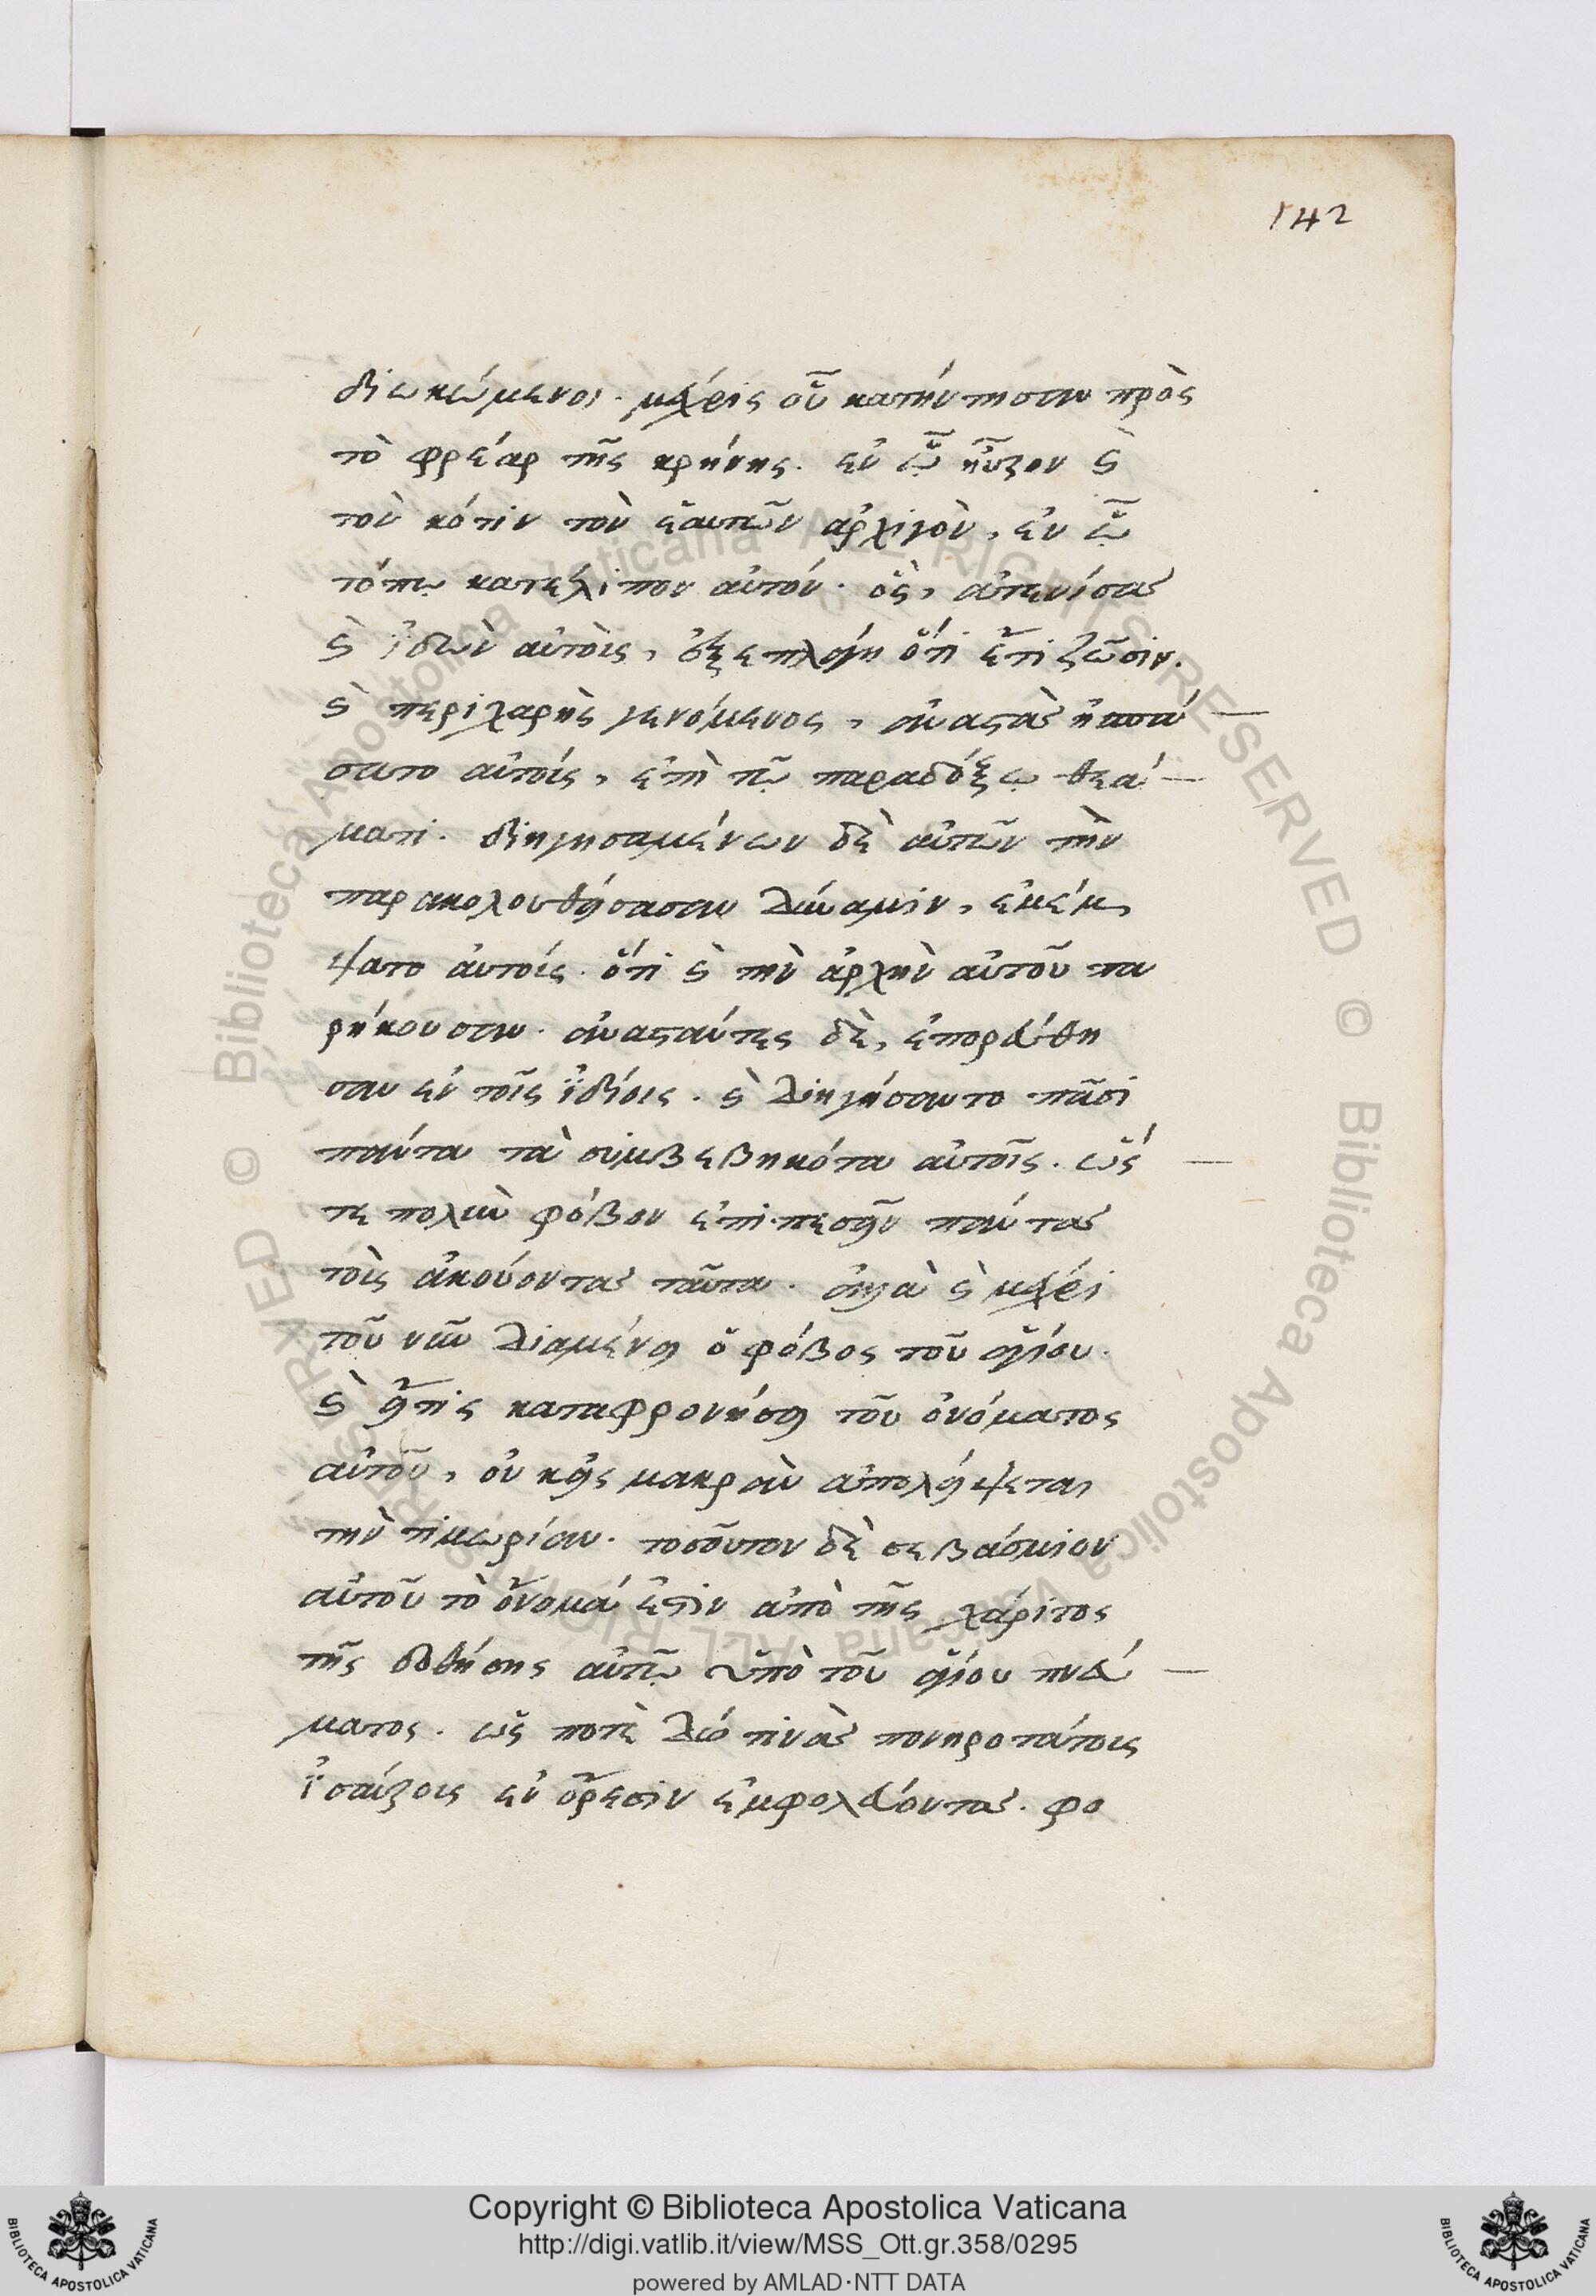 142
διωκώμενοι. μέχρις οὗ κατήντησαν πρὸς
τὸ φρέαρ τῆς κρήνης. ἐν ᾧ ηὗρον καὶ
τὸν κότιν τὸν ἑαυτῶν ἀρχιγὸν, ἐν ᾧ
τόπω κατέλιπον αὐτόν. ὃς, ἀτενίσας
καὶ ἰδὼν αὐτοὺς, ἐξεπλάγη ὅτι ἔτι ζῶσιν.
καὶ περιχαρὴς γενόμενος, ἀναστὰς ἠσπά
σατο αὐτούς, ἐπὶ τῷ παραδόξῳ θεά
ματι. διηγησαμένων δὲ αὐτῶν τὴν
παρακολουθήσασαν δύναμιν, ἐμέμ
ψατο αὐτούς. ὅτι καὶ τὴν ἀρχὴν αὐτοῦ πα
ρήκουσαν. ἀναστάντες δὲ, ἐπορεύθη
σαν ἐν τοῖς ἰδίοις. καὶ διηγήσαντο πᾶσι
πάντα τὰ συμβεβηκότα αὐτοῖς. ὥς
τε πολὺν φόβον ἐπιπεσεῖν πάντας
τοὺς ἀκούοντας ταῦτα. ἀλλὰ καὶ μέχρι
τοῦ νῦν διαμένει ὁ φόβος τοῦ ἁγίου.
καὶ εἴ τις καταφρονήσει τοῦ ὀνόματος
αὐτοῦ, οὐκ εἰς μακρὰν ἀπολήψεται
τὴν τιμωρίαν. τοσοῦτον δὲ σεβάσμιον
αὐτοῦ τὸ ὄνομά ἐστιν ἀπὸ τῆς χάριτος
τῆς δοθήσης αὐτῷ ὑπὸ τοῦ ἁγίου πνεύ
ματος. ὥς ποτὲ δύο τινὰς πονηροτάτους
ἰσαύρους ἐν ὄρεσιν ἐμφολεύοντας. φο
Copyright © Biblioteca Apostolica Vaticana
http://digi.vatlib.it/view/MSS_Ott.gr.358/0295
powered by AMLAD·NTT DATA